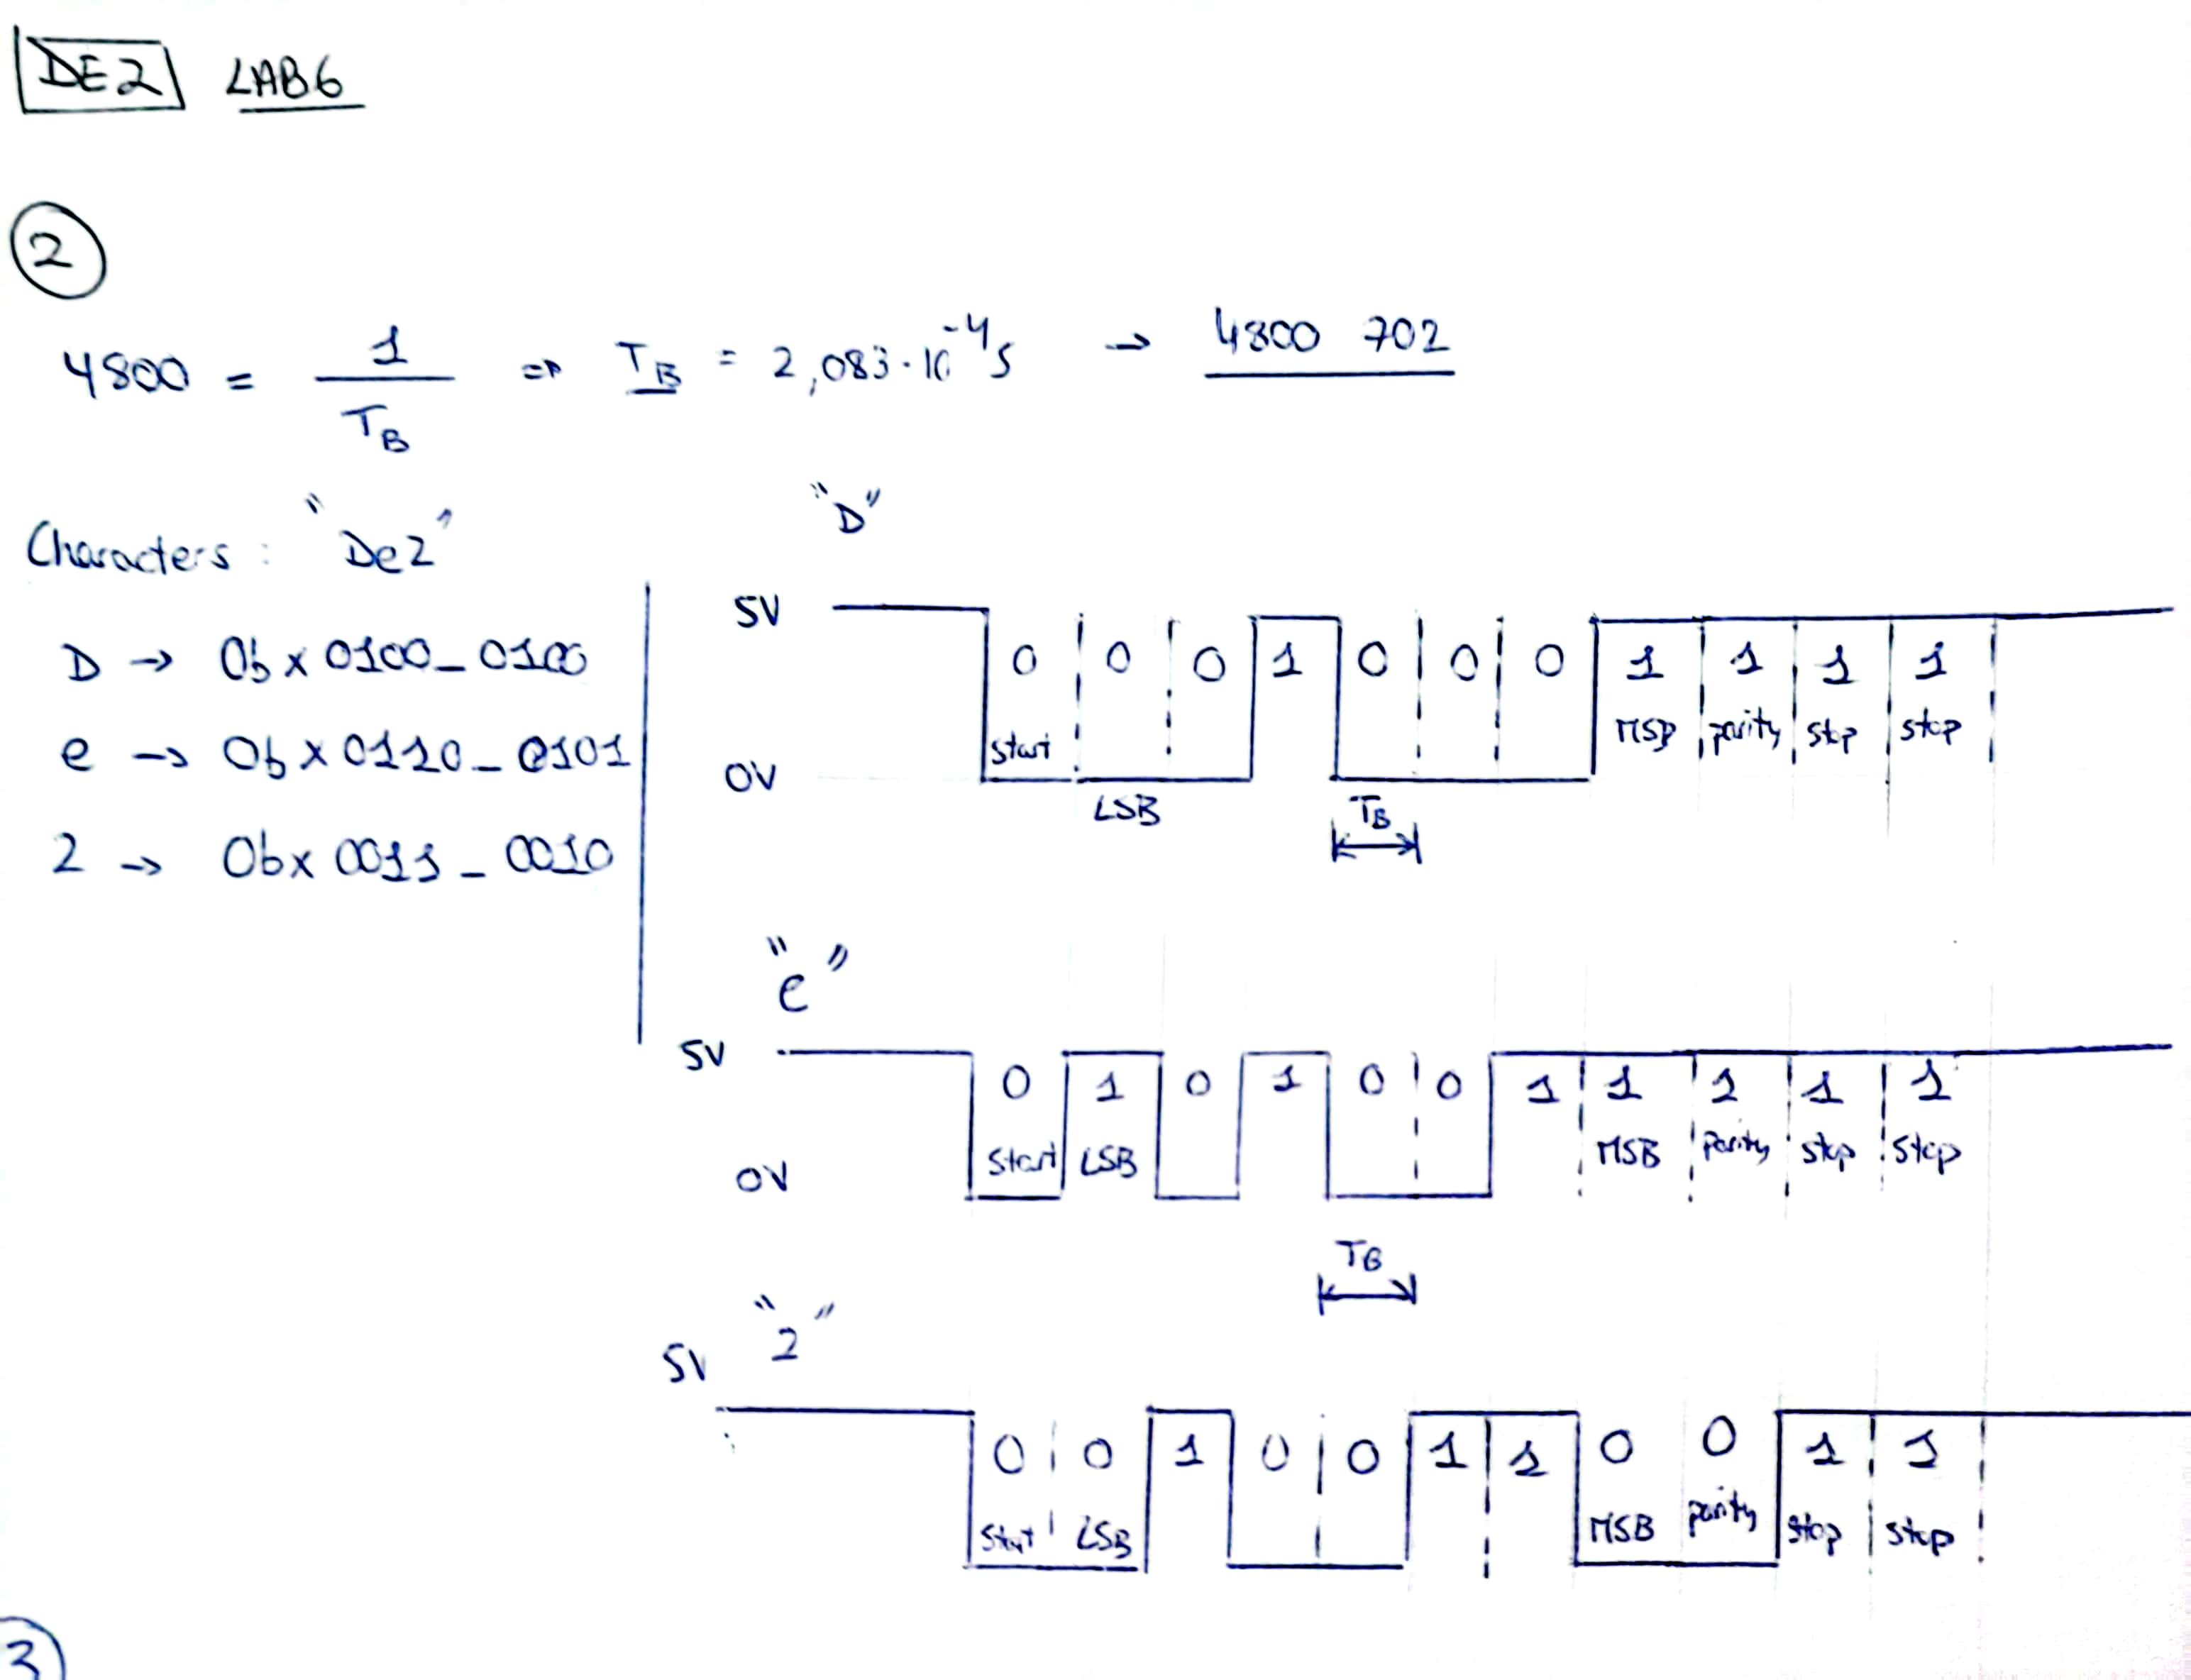 DE2 LAB6
2
4800 = 1 / T_B => T_B = 2,083·10^-4 s → 4800 7O2
Characters: "De2"
D → 0b x 0100_0100
e → 0b x 0110_0101
2 → 0b x 0011_0010
"D"
5V
0 0 0 1 0 0 0 1 1 1 1
start MSB parity stop stop
0V
LSB T_B
"e"
5V
0 1 0 1 0 0 1 1 1 1 1
start LSB MSB parity stop stop
0V
T_B
"2"
5V
0 0 1 0 0 1 1 0 0 1 1
start LSB MSB parity stop stop
3